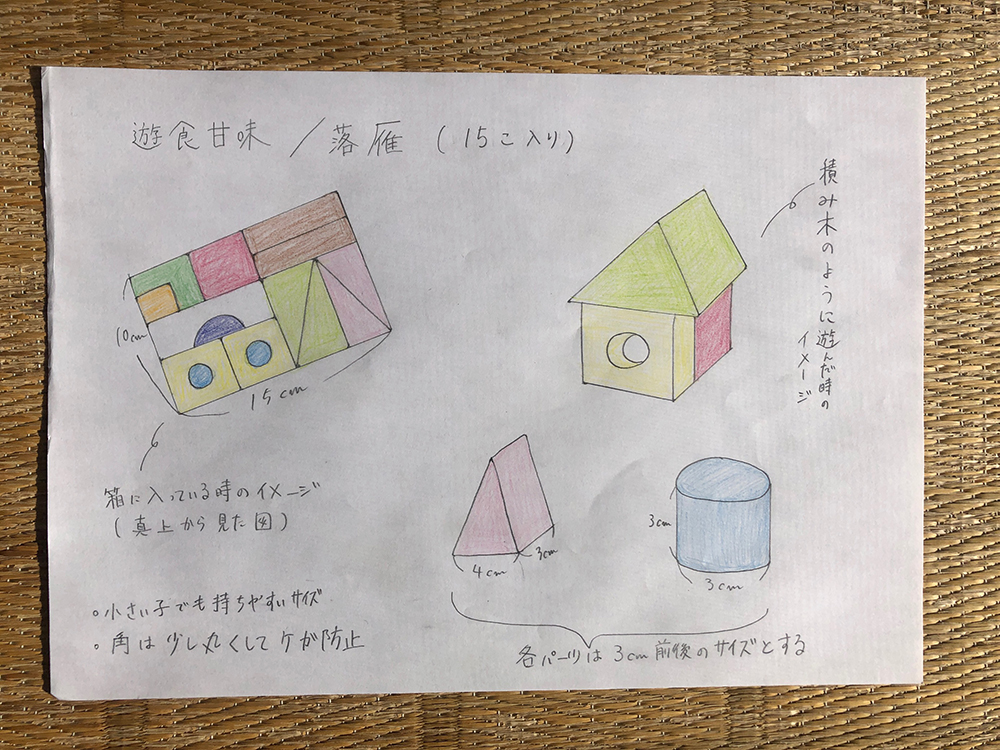 遊食甘味 / 落雁 (15こ入り)
積み木のように遊んだ時の
イメージ
10cm
15cm
箱に入っている時のイメージ
(真上から見た図)
4cm
3cm
3cm
3cm
。小さい子でも持ちやすいサイズ
・角は少し丸くしてケガ防止
各パーツは3cm前後のサイズとする